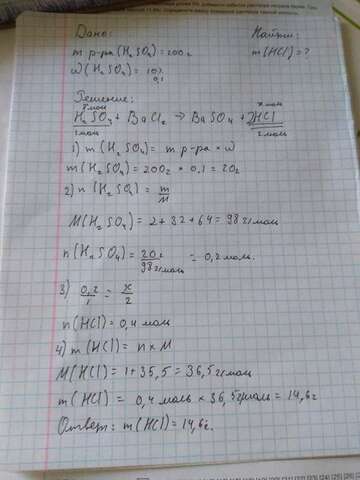 Дано:
Найти:
m р-ра (H₂SO₄) = 200г
m(HCl) = ?
ω(H₂SO₄) = 10%
0,1
Решение:
H₂SO₄ + BaCl₂ → BaSO₄ + 2HCl
1моль
2моль
1) m(H₂SO₄) = m р-ра × ω
m(H₂SO₄) = 200г × 0,1 = 20г
2) n(H₂SO₄) = m/M
M(H₂SO₄) = 2 + 32 + 64 = 98 г/моль
n(H₂SO₄) = 20г/98г/моль = 0,2 моль.
3) 0,2/1 = x/2
n(HCl) = 0,4 моль
4) m(HCl) = n × M
M(HCl) = 1 + 35,5 = 36,5 г/моль
m(HCl) = 0,4 моль × 36,5 г/моль = 14,6г
Ответ: m(HCl) = 14,6г.